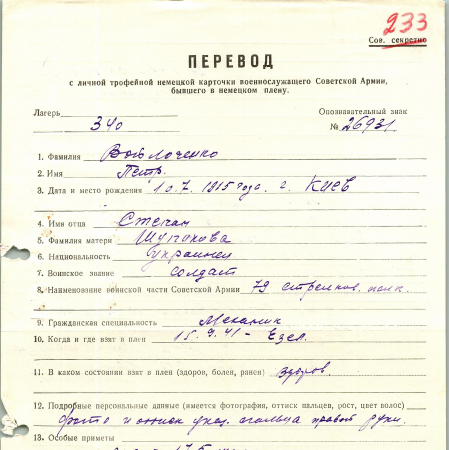 233
Сов. секретно
ПЕРЕВОД
с личной трофейной немецкой карточки военнослужащего Советской Армии,
бывшего в немецком плену.
Лагерь 340
Опознавательный знак
№ 26931
1. Фамилия Войлоченко
2. Имя Петр.
3. Дата и место рождения 10.7.1915 года. г. Киев
4. Имя отца Степан
5. Фамилия матери
6. Национальность Украинец
7. Воинское звание солдат
8. Наименование воинской части Советской Армии 79 стрелков. полк.
9. Гражданская специальность Механик
10. Когда и где взят в плен 15.9.41 - Езел.
11. В каком состоянии взят в плен (здоров, болен, ранен) здоров
12. Подробные персональные данные (имеется фотография, оттиск пальцев, рост, цвет волос)
фото и оттиск указ. пальца правой руки.
13. Особые приметы